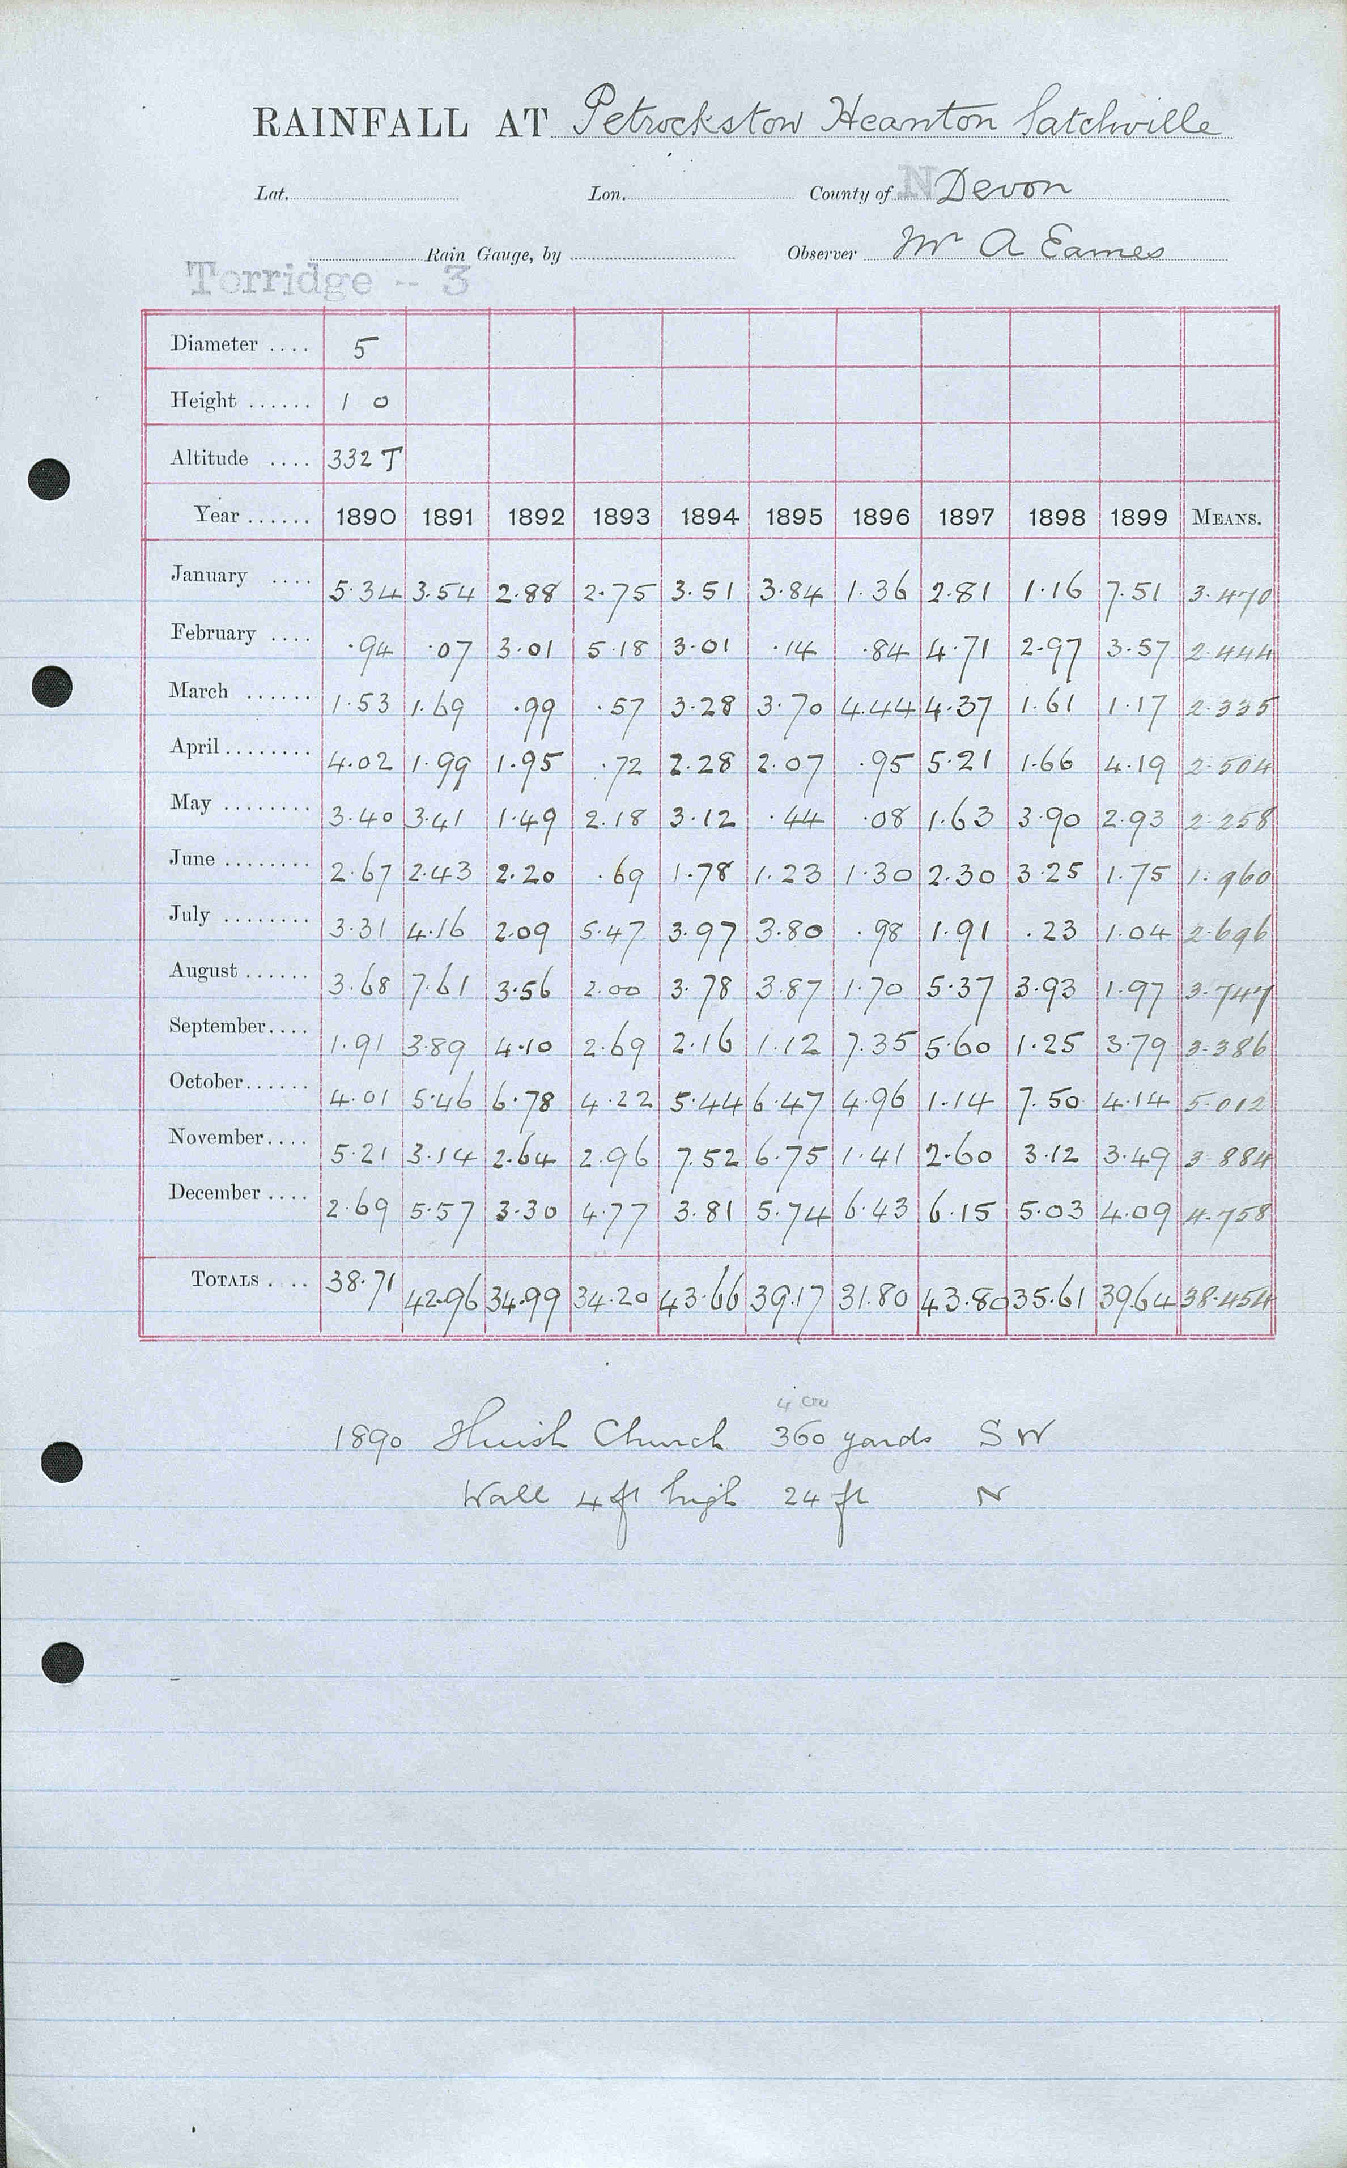 RAINFALL AT Petrockstow Heanton Satchville
Lat. Lon. County of N Devon
Rain Gauge, by Observer Mr A Eames
Torridge -- 3
Diameter .... 5
Height ...... 1 0
Altitude .... 332 T
Year ...... 1890 1891 1892 1893 1894 1895 1896 1897 1898 1899 MEANS.
January .... 5.34 3.54 2.88 2.75 3.51 3.84 1.36 2.81 1.16 7.51 3.470
February .... .94 .07 3.01 5.18 3.01 .14 .84 4.71 2.97 3.57 2.444
March ...... 1.53 1.69 .99 .57 3.28 3.70 4.44 4.37 1.61 1.17 2.335
April ........ 4.02 1.99 1.95 .72 2.28 2.07 .95 5.21 1.66 4.19 2.504
May ........ 3.40 3.41 1.49 2.18 3.12 .44 .08 1.63 3.90 2.93 2.258
June ........ 2.67 2.43 2.20 .69 1.78 1.23 1.30 2.30 3.25 1.75 1.960
July ........ 3.31 4.16 2.09 5.47 3.97 3.80 .98 1.91 .23 1.04 2.696
August ...... 3.68 7.61 3.56 2.00 3.78 3.87 1.70 5.37 3.93 1.97 3.747
September.... 1.91 3.89 4.10 2.69 2.16 1.12 7.35 5.60 1.25 3.79 3.386
October...... 4.01 5.46 6.78 4.22 5.44 6.47 4.96 1.14 7.50 4.14 5.012
November.... 5.21 3.14 2.64 2.96 7.52 6.75 1.41 2.60 3.12 3.49 3.884
December .... 2.69 5.57 3.30 4.77 3.81 5.74 6.43 6.15 5.03 4.09 4.758
TOTALS .... 38.71 42.96 34.99 34.20 43.66 39.17 31.80 43.80 35.61 39.64 38.454
1890 Huish Church 360 yards S W
Wall 4 ft high 24 ft N